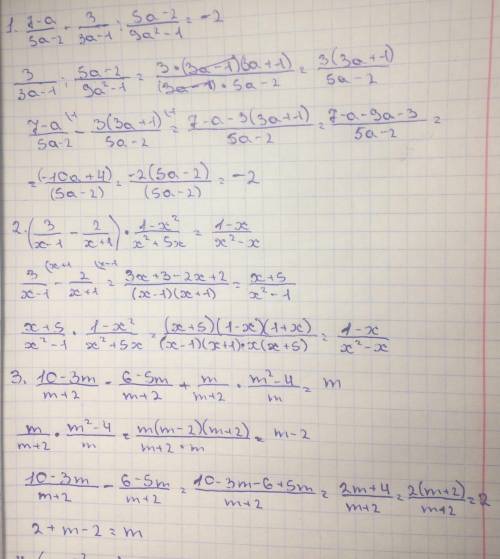 1. (7-a)/(5a-2) - 3/(3a-1) : (5a-2)/(9a²-1) = -2
3/(3a-1) : (5a-2)/(9a²-1) = (3·(3a-1)(3a+1))/((3a-1)·5a-2) = (3(3a+1))/(5a-2)
(7-a)/(5a-2) - (3(3a+1))/(5a-2) = (7-a-3(3a+1))/(5a-2) = (7-a-9a-3)/(5a-2) =
= (-10a+4)/(5a-2) = (-2(5a-2))/(5a-2) = -2
2. (3/(x-1) - 2/(x+1)) · (1-x²)/(x²+5x) = (1-x)/(x²-x)
3/(x-1) (x+1 - 2/(x+1) (x-1 = (3x+3-2x+2)/((x-1)(x+1)) = (x+5)/(x²-1)
(x+5)/(x²-1) · (1-x²)/(x²+5x) = ((x+5)(1-x)(1+x))/((x-1)(x+1)·x(x+5)) = (1-x)/(x²-x)
3. (10-3m)/(m+2) - (6-5m)/(m+2) + m/(m+2) · (m²-4)/m = m
m/(m+2) · (m²-4)/m = (m(m-2)(m+2))/(m+2·m) = m-2
(10-3m)/(m+2) - (6-5m)/(m+2) = (10-3m-6+5m)/(m+2) = (2m+4)/(m+2) = (2(m+2))/(m+2) = 2
2+m-2=m